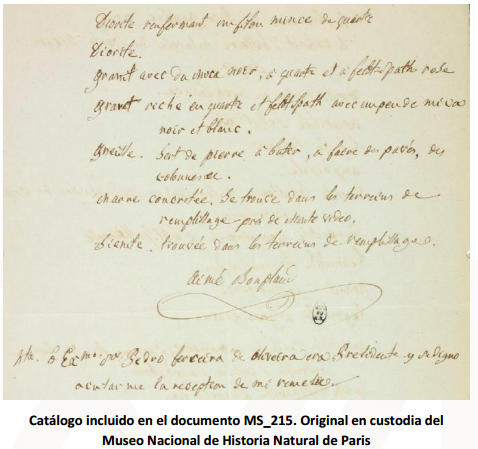 Diorite renfermant un filon mince de quartz
Diorite.
granit avec du mica noir, à quartz et à feldt-spath rose
granit riche en quartz et feldt-spath avec un peu de mica
noir et blanc.
gneiss. Sert de pierre à bâtir, à faire des pavés, des
colonnes &c.
concretée. Se trouve dans les terreins de
remplissage près de Monte video.
Sienite. trouvée dans les terreins de remplissage.
Aimé Bonpland
Nta. El Exmo. Sor. Pedro ferreira de Oliveira era Presidente y se digno
acusarme la reception de mi remesa.
Catálogo incluido en el documento MS_215. Original en custodia del
Museo Nacional de Historia Natural de Paris